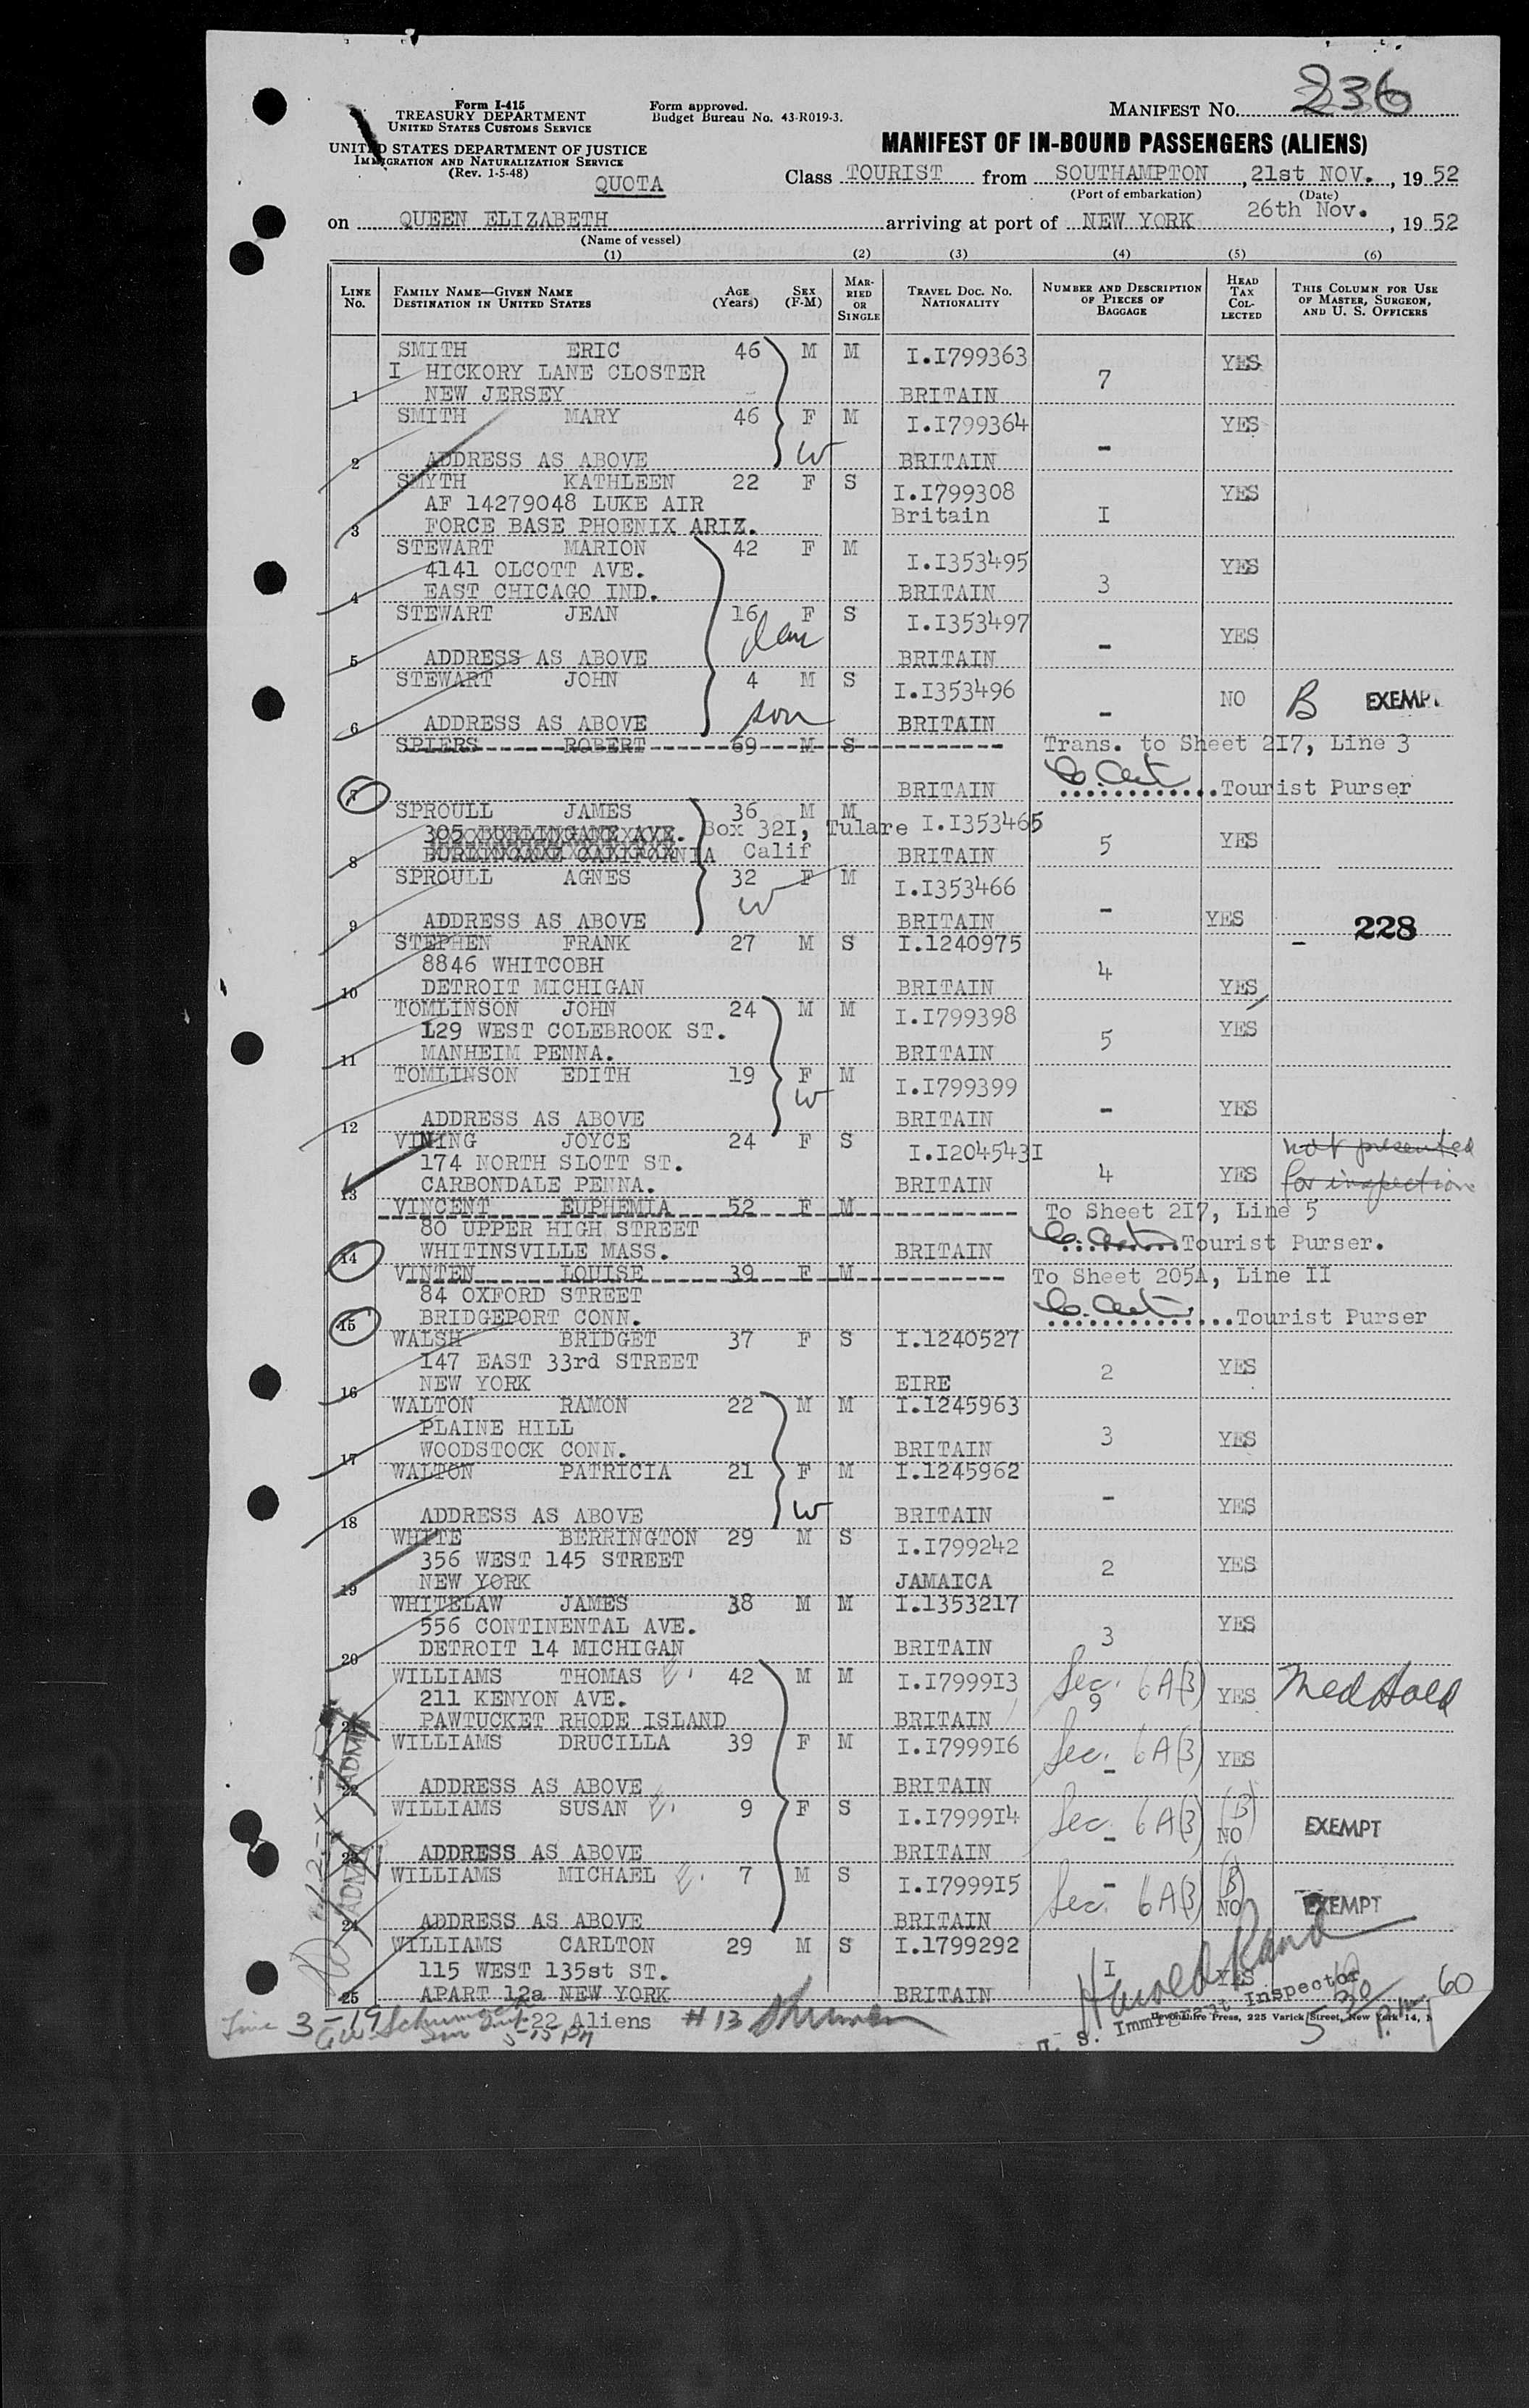 Form I-415
TREASURY DEPARTMENT
UNITED STATES CUSTOMS SERVICE
UNITED STATES DEPARTMENT OF JUSTICE
IMMIGRATION AND NATURALIZATION SERVICE
(Rev. 1-5-48)
QUOTA
Form approved.
Budget Bureau No. 43-R019-3.
MANIFEST NO. 236
MANIFEST OF IN-BOUND PASSENGERS (ALIENS)
Class TOURIST from SOUTHAMPTON, 21st NOV., 19 52
(Port of embarkation) (Date)
on QUEEN ELIZABETH arriving at port of NEW YORK 26th Nov., 19 52
(Name of vessel)
(1) (2) (3) (4) (5) (6)
LINE No. FAMILY NAME—GIVEN NAME DESTINATION IN UNITED STATES AGE (Years) SEX (F-M) MARRIED OR SINGLE TRAVEL DOC. NO. NATIONALITY NUMBER AND DESCRIPTION OF PIECES OF BAGGAGE HEAD TAX COLLECTED THIS COLUMN FOR USE OF MASTER, SURGEON, AND U. S. OFFICERS
SMITH ERIC 46 M M I.I799363 YES
I HICKORY LANE CLOSTER 7
1 NEW JERSEY BRITAIN
SMITH MARY 46 F M I.I799364 YES
W -
2 ADDRESS AS ABOVE BRITAIN
SMYTH KATHLEEN 22 F S I.I799308 YES
AF 14279048 LUKE AIR Britain I
3 FORCE BASE PHOENIX ARIZ.
STEWART MARION 42 F M I.I353495 YES
4141 OLCOTT AVE. 3
4 EAST CHICAGO IND. BRITAIN
STEWART JEAN 16 F S I.I353497 YES
-
5 ADDRESS AS ABOVE BRITAIN
STEWART JOHN 4 M S I.I353496 NO B EXEMPT
son -
6 ADDRESS AS ABOVE BRITAIN
SPIERS ROBERT 69 M S Trans. to Sheet 2I7, Line 3
7 BRITAIN Tourist Purser
SPROULL JAMES 36 M M I.I353465
305 BURLINGAME AVE. Box 32I, Tulare 5 YES
8 BURLINGAME CALIFORNIA Calif BRITAIN
SPROULL AGNES 32 F M I.I353466
W -
9 ADDRESS AS ABOVE BRITAIN YES - 228
STEPHEN FRANK 27 M S I.1240975
8846 WHITCOBH 4
10 DETROIT MICHIGAN BRITAIN YES
TOMLINSON JOHN 24 M M I.I799398 YES
129 WEST COLEBROOK ST. 5
11 MANHEIM PENNA. BRITAIN
TOMLINSON EDITH 19 F M I.I799399
W - YES
12 ADDRESS AS ABOVE BRITAIN
VINING JOYCE 24 F S I.I204543I not presented
174 NORTH SLOTT ST. 4 YES for inspection
13 CARBONDALE PENNA. BRITAIN
VINCENT EUPHEMIA 52 F M To Sheet 2I7, Line 5
80 UPPER HIGH STREET
14 WHITINSVILLE MASS. BRITAIN Tourist Purser.
VINTEN LOUISE 39 F M To Sheet 205A, Line II
84 OXFORD STREET
15 BRIDGEPORT CONN. Tourist Purser
WALSH BRIDGET 37 F S I.1240527
147 EAST 33rd STREET 2 YES
16 NEW YORK EIRE
WALTON RAMON 22 M M I.1245963
PLAINE HILL 3 YES
17 WOODSTOCK CONN. BRITAIN
WALTON PATRICIA 21 F M I.1245962
W - YES
18 ADDRESS AS ABOVE BRITAIN
WHITE BERRINGTON 29 M S I.I799242
356 WEST 145 STREET 2 YES
19 NEW YORK JAMAICA
WHITELAW JAMES 38 M M I.1353217
556 CONTINENTAL AVE. 3 YES
20 DETROIT 14 MICHIGAN BRITAIN
WILLIAMS THOMAS 42 M M I.I7999I3 Sec. 6A(3) YES Med Hold
211 KENYON AVE. 9
21 PAWTUCKET RHODE ISLAND BRITAIN
WILLIAMS DRUCILLA 39 F M I.I7999I6 Sec. 6A(3) YES
-
22 ADDRESS AS ABOVE BRITAIN
WILLIAMS SUSAN 9 F S I.I7999I4 Sec. 6A(3) (B) NO EXEMPT
-
23 ADDRESS AS ABOVE BRITAIN
WILLIAMS MICHAEL 7 M S I.I7999I5 Sec. 6A(3) (B) NO EXEMPT
-
24 ADDRESS AS ABOVE BRITAIN
WILLIAMS CARLTON 29 M S I.1799292
115 WEST 135st ST. I YES
25 APART 12a NEW YORK BRITAIN
ADMI
ADMI
Harold Rand
U. S. Immigrant Inspector
60
5 30 P.M.
Line 3-19
22 Aliens #13
5-15 PM
Devonshire Press, 225 Varick Street, New York 14, N